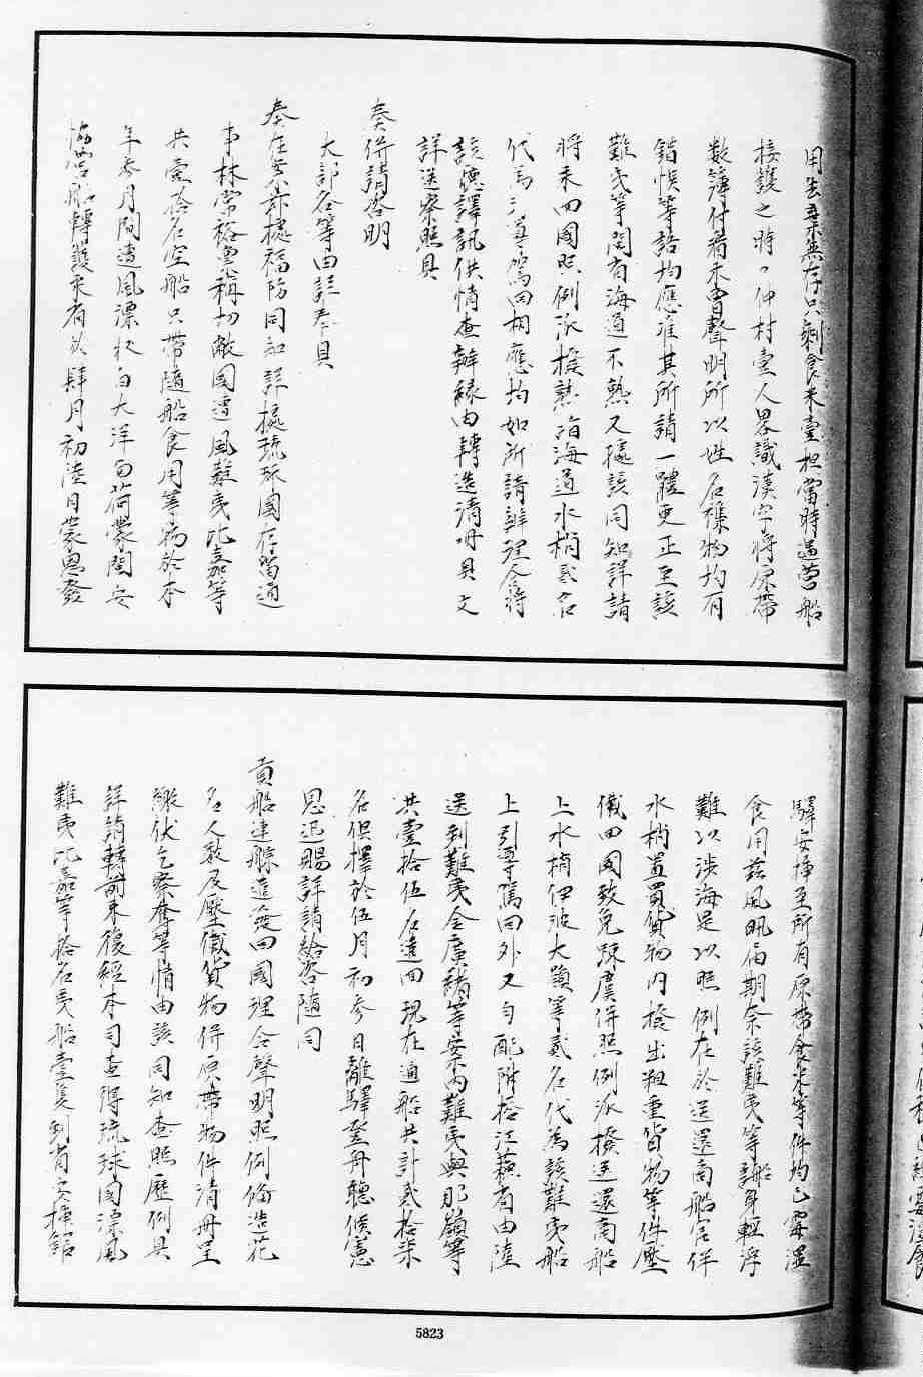 用告棄無存只剩食米壹担當時遇营船
接護之時口仲村壹人畧識漢字将原帶
数簿付看未曾聲明所以姓名襍物均有
錯悞等語均應准其所請一體更正至該
難夷等聞有海道不熟又據該同知詳請
将来回國照例派撥熟諳海道水梢貳名
代為引導駕回栩應均如所請辦理合将
該應譯訊供情查辦緣由轉造清冊具文
詳送察照具
奏併請咨明
大部各等由詳奉具
奉在案茲據福防同知詳據琉球國存留通
事林常裕稟稱切敝國遭風難夷比嘉等
共壹拾名空船只帶隨船食用等物於本
年叁月間遭風漂收白大洋面荷蒙閩安
協营船轉護来省於肆月初陸日蒙恩發
驛安挿至所有原帶食米等件均已霉濕
食用茲風汛屆期奈該難夷等船身輕浮
難以涉海是以照例在於送還商船官伴
水梢置買貨物内撥出粗重貨物等件壓
儎回國致免踈虞併照例派撥送還商船
上水梢伊波大嶺等貳名代為該難夷船
上引導駕回外又自配附拾江蘓省由陸
送到難夷金廣緒等案内難夷與那嶺等
共壹拾伍名遣回現在通船共計貳拾柒
名俱擇於伍月初参日離驛登舟聽候憲
恩迅賜詳請給咨隨同
貢船連䑸遣發回國理合聲明照例俻造花
名人数及壓儎貨物併原帶物件清冊呈
繳伏乞察奪等情由該同知查照歷例具
詳請轉前来復經本司查得琉球國漂風
難夷比嘉等拾名夷船壹隻到省安挿館
5823